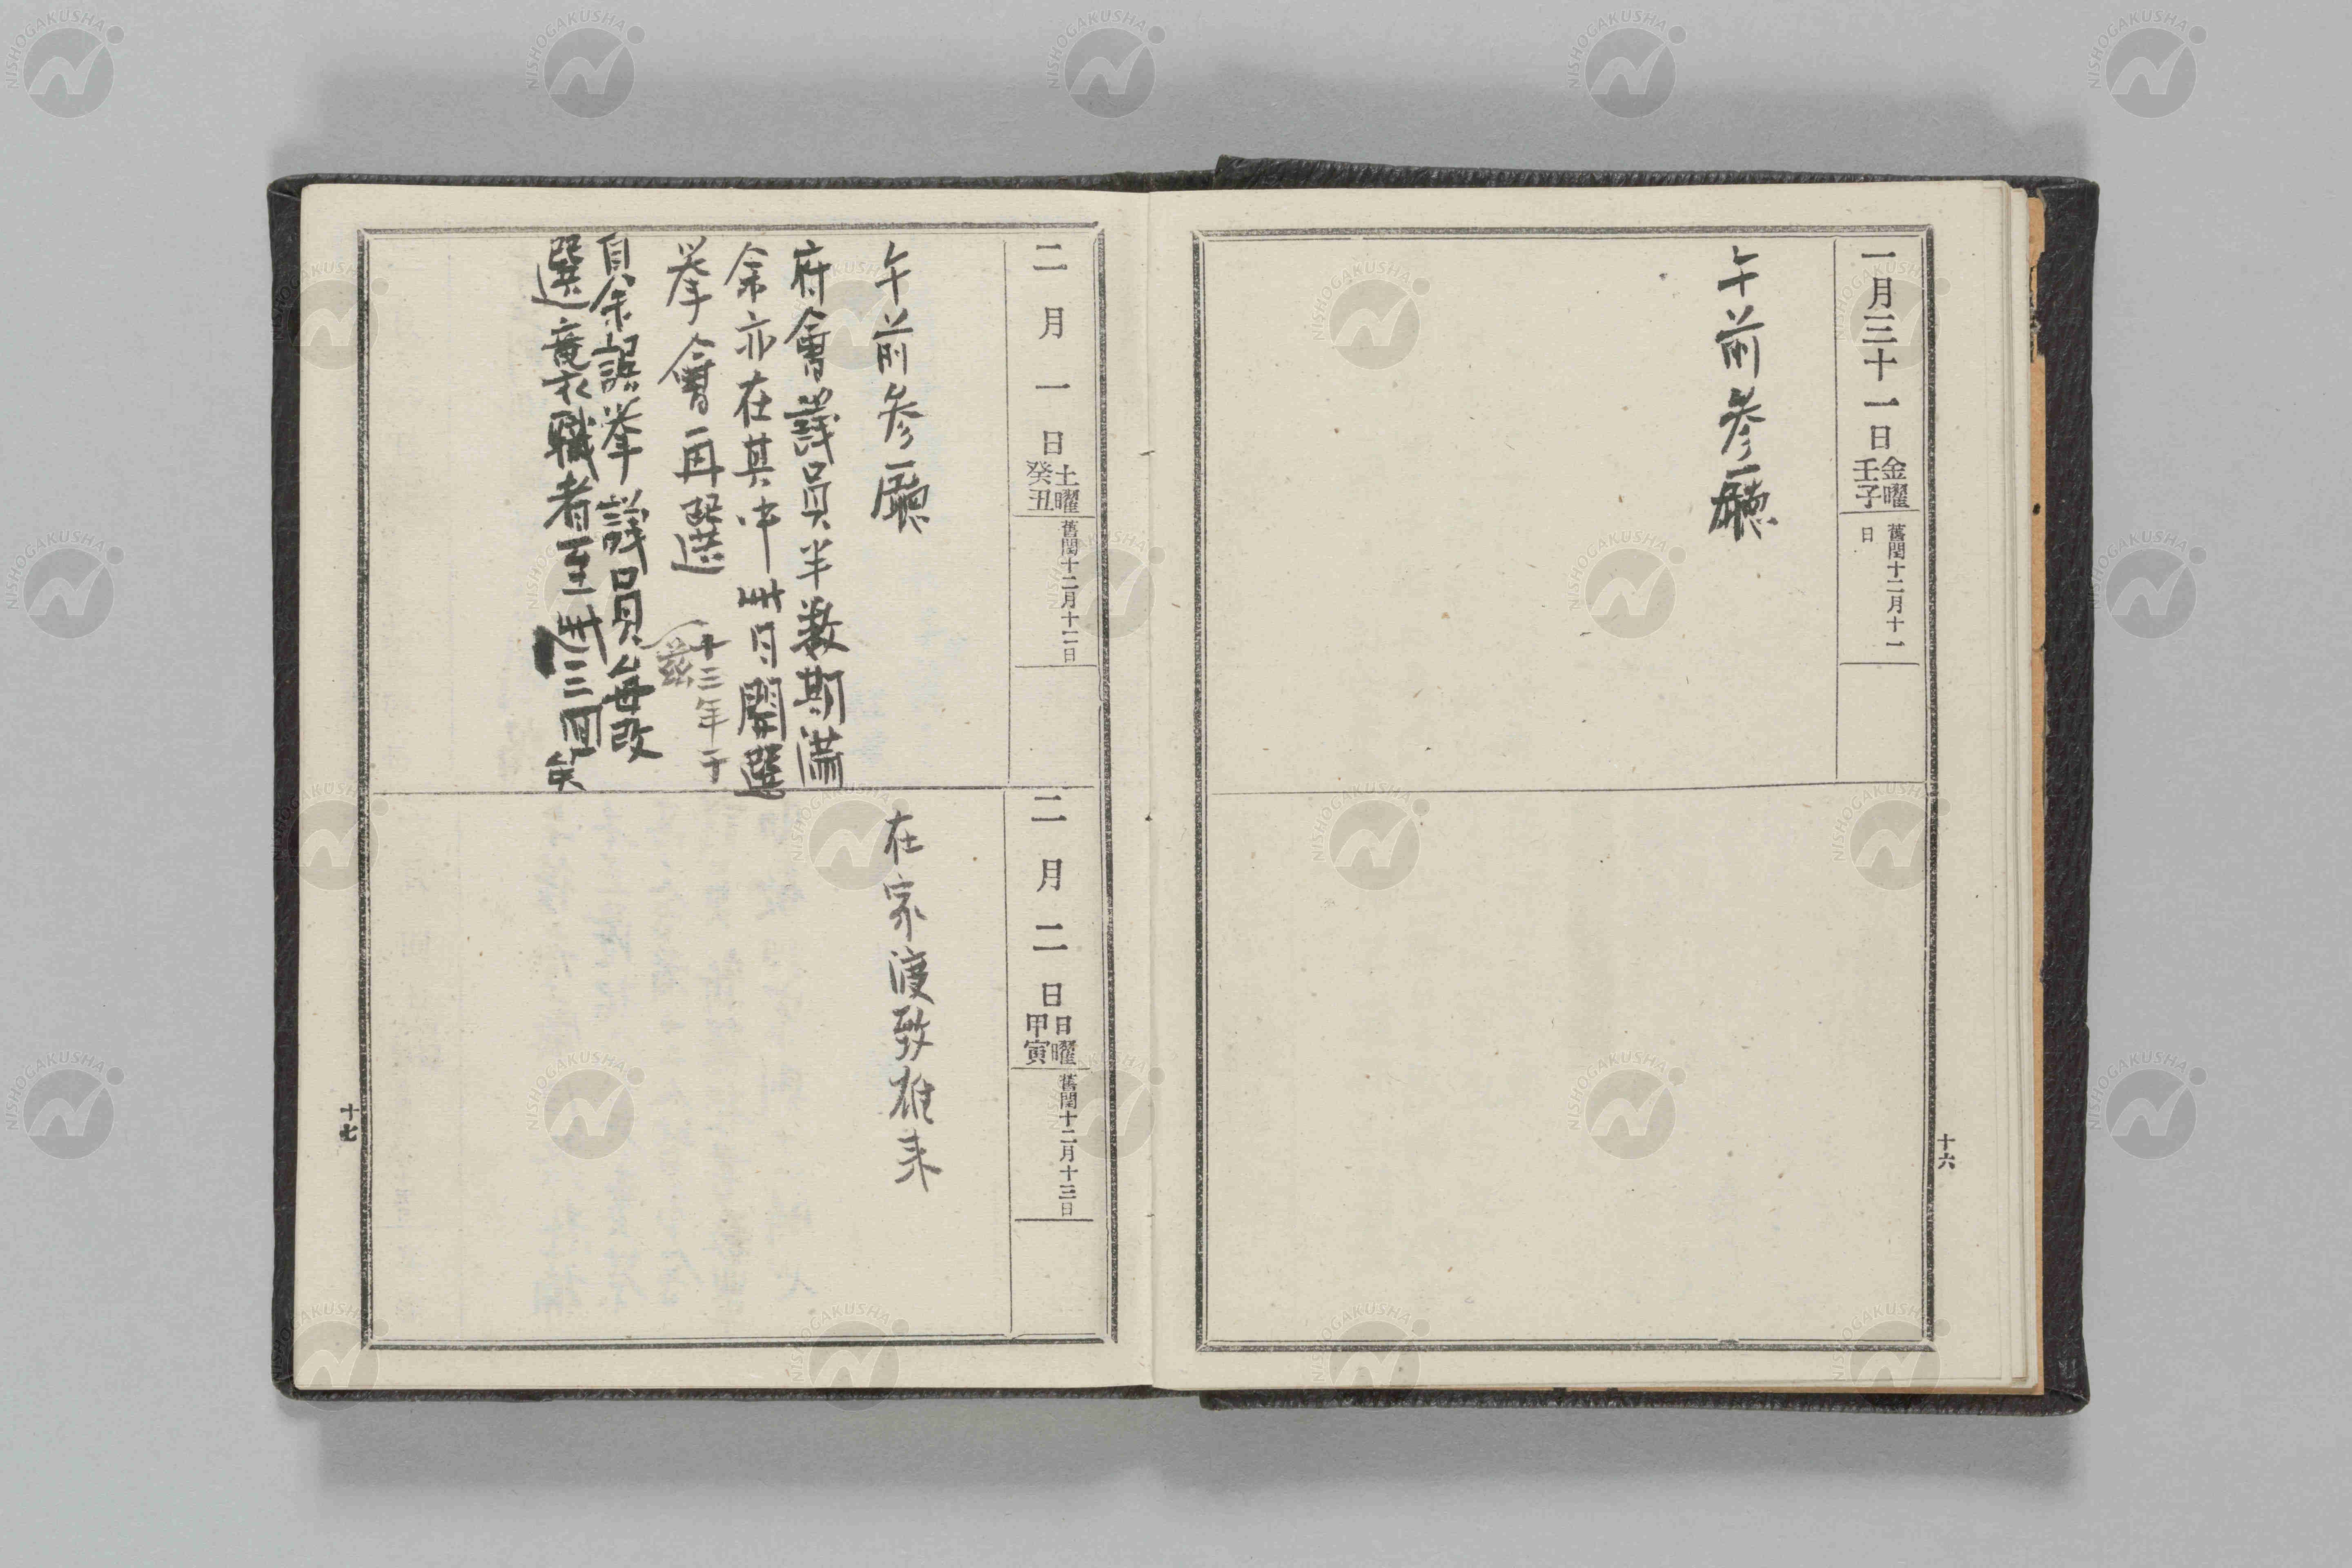 一月三十一日 金曜 壬子 舊閏十二月十一日
午前参廳
十六
二月一日 土曜 癸丑 舊閏十二月十二日
午前参廳
府會議員半数期満
余亦在其中此日開選
挙會再選
十三年于
茲
自余誤挙議員毎改
選竟衣職者至此三回矣
二月二日 日曜 甲寅 舊閏十二月十三日
在家渡致雄来
十七
NISHOGAKUSHA